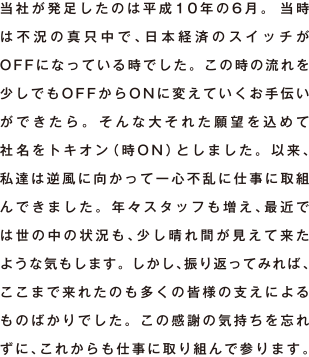 当社が発足したのは平成10年の6月。当時
は不況の真只中で、日本経済のスイッチが
OFFになっている時でした。この時の流れを
少しでもOFFからONに変えていくお手伝い
ができたら。そんな大それた願望を込めて
社名をトキオン（時ON）としました。以来、
私達は逆風に向かって一心不乱に仕事に取組
んできました。年々スタッフも増え、最近で
は世の中の状況も、少し晴れ間が見えて来た
ような気もします。しかし、振り返ってみれば、
ここまで来れたのも多くの皆様の支えによる
ものばかりでした。この感謝の気持ちを忘れ
ずに、これからも仕事に取り組んで参ります。